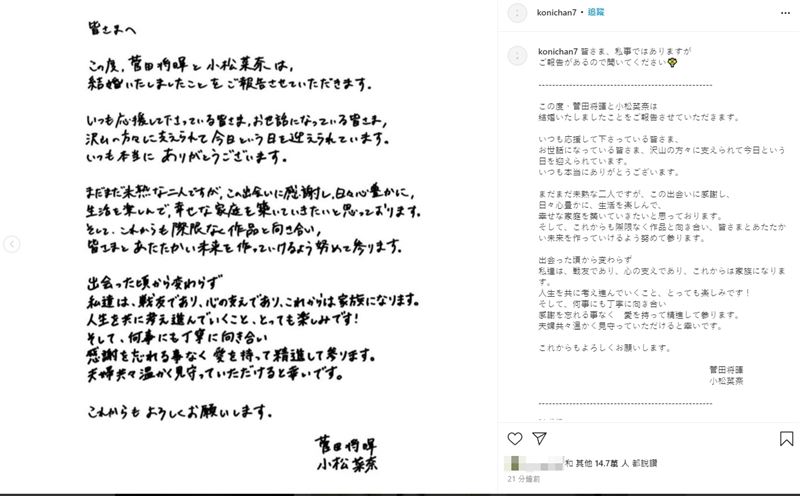 皆さまへ
この度、菅田将暉と小松菜奈は、
結婚いたしましたことをご報告させていただきます。
いつも応援して下さっている皆さま、お世話になっている皆さま、
沢山の方々に支えられて今日という日を迎えられています。
いつも本当にありがとうございます。
まだまだ未熟な二人ですが、この出会いに感謝し、日々心豊かに、
生活を楽しんで、幸せな家庭を築いていきたいと思っております。
そして、これからも際限なく作品と向き合い、
皆さまとあたたかい未来を作っていけるよう努めて参ります。
出会った頃から変わらず
私達は、戦友であり、心の支えであり、これからは家族になります。
人生を共に考え進んでいくこと、とっても楽しみです!
そして、何事にも丁寧に向き合い
感謝を忘れる事なく 愛を持って精進して参ります。
夫婦共々温かく見守っていただけると幸いです。
これからもよろしくお願いします。
菅田将暉
小松菜奈
konichan7 • 追蹤
konichan7 皆さま、私事ではありますが
ご報告があるので聞いてください💐
------------------------------------------------
この度・菅田将暉と小松菜奈は
結婚いたしましたことをご報告させていただきます。
いつも応援して下さっている皆さま、
お世話になっている皆さま、沢山の方々に支えられて今日という
日を迎えられています。
いつも本当にありがとうございます。
まだまだ未熟な二人ですが、この出会いに感謝し、
日々心豊かに、生活を楽しんで、
幸せな家庭を築いていきたいと思っております。
そして、これからも際限なく作品と向き合い、皆さまとあたたか
い未来を作っていけるよう努めて参ります。
出会った頃から変わらず
私達は、戦友であり、心の支えであり、これからは家族になりま
す。
人生を共に考え進んでいくこと、とっても楽しみです!
そして、何事にも丁寧に向き合い
感謝を忘れる事なく 愛を持って精進して参ります。
夫婦共々温かく見守っていただけると幸いです。
これからもよろしくお願いします。
菅田将暉
小松菜奈
------------------------------------------------
和 其他 14.7萬 人 都說讚
21 分鐘前